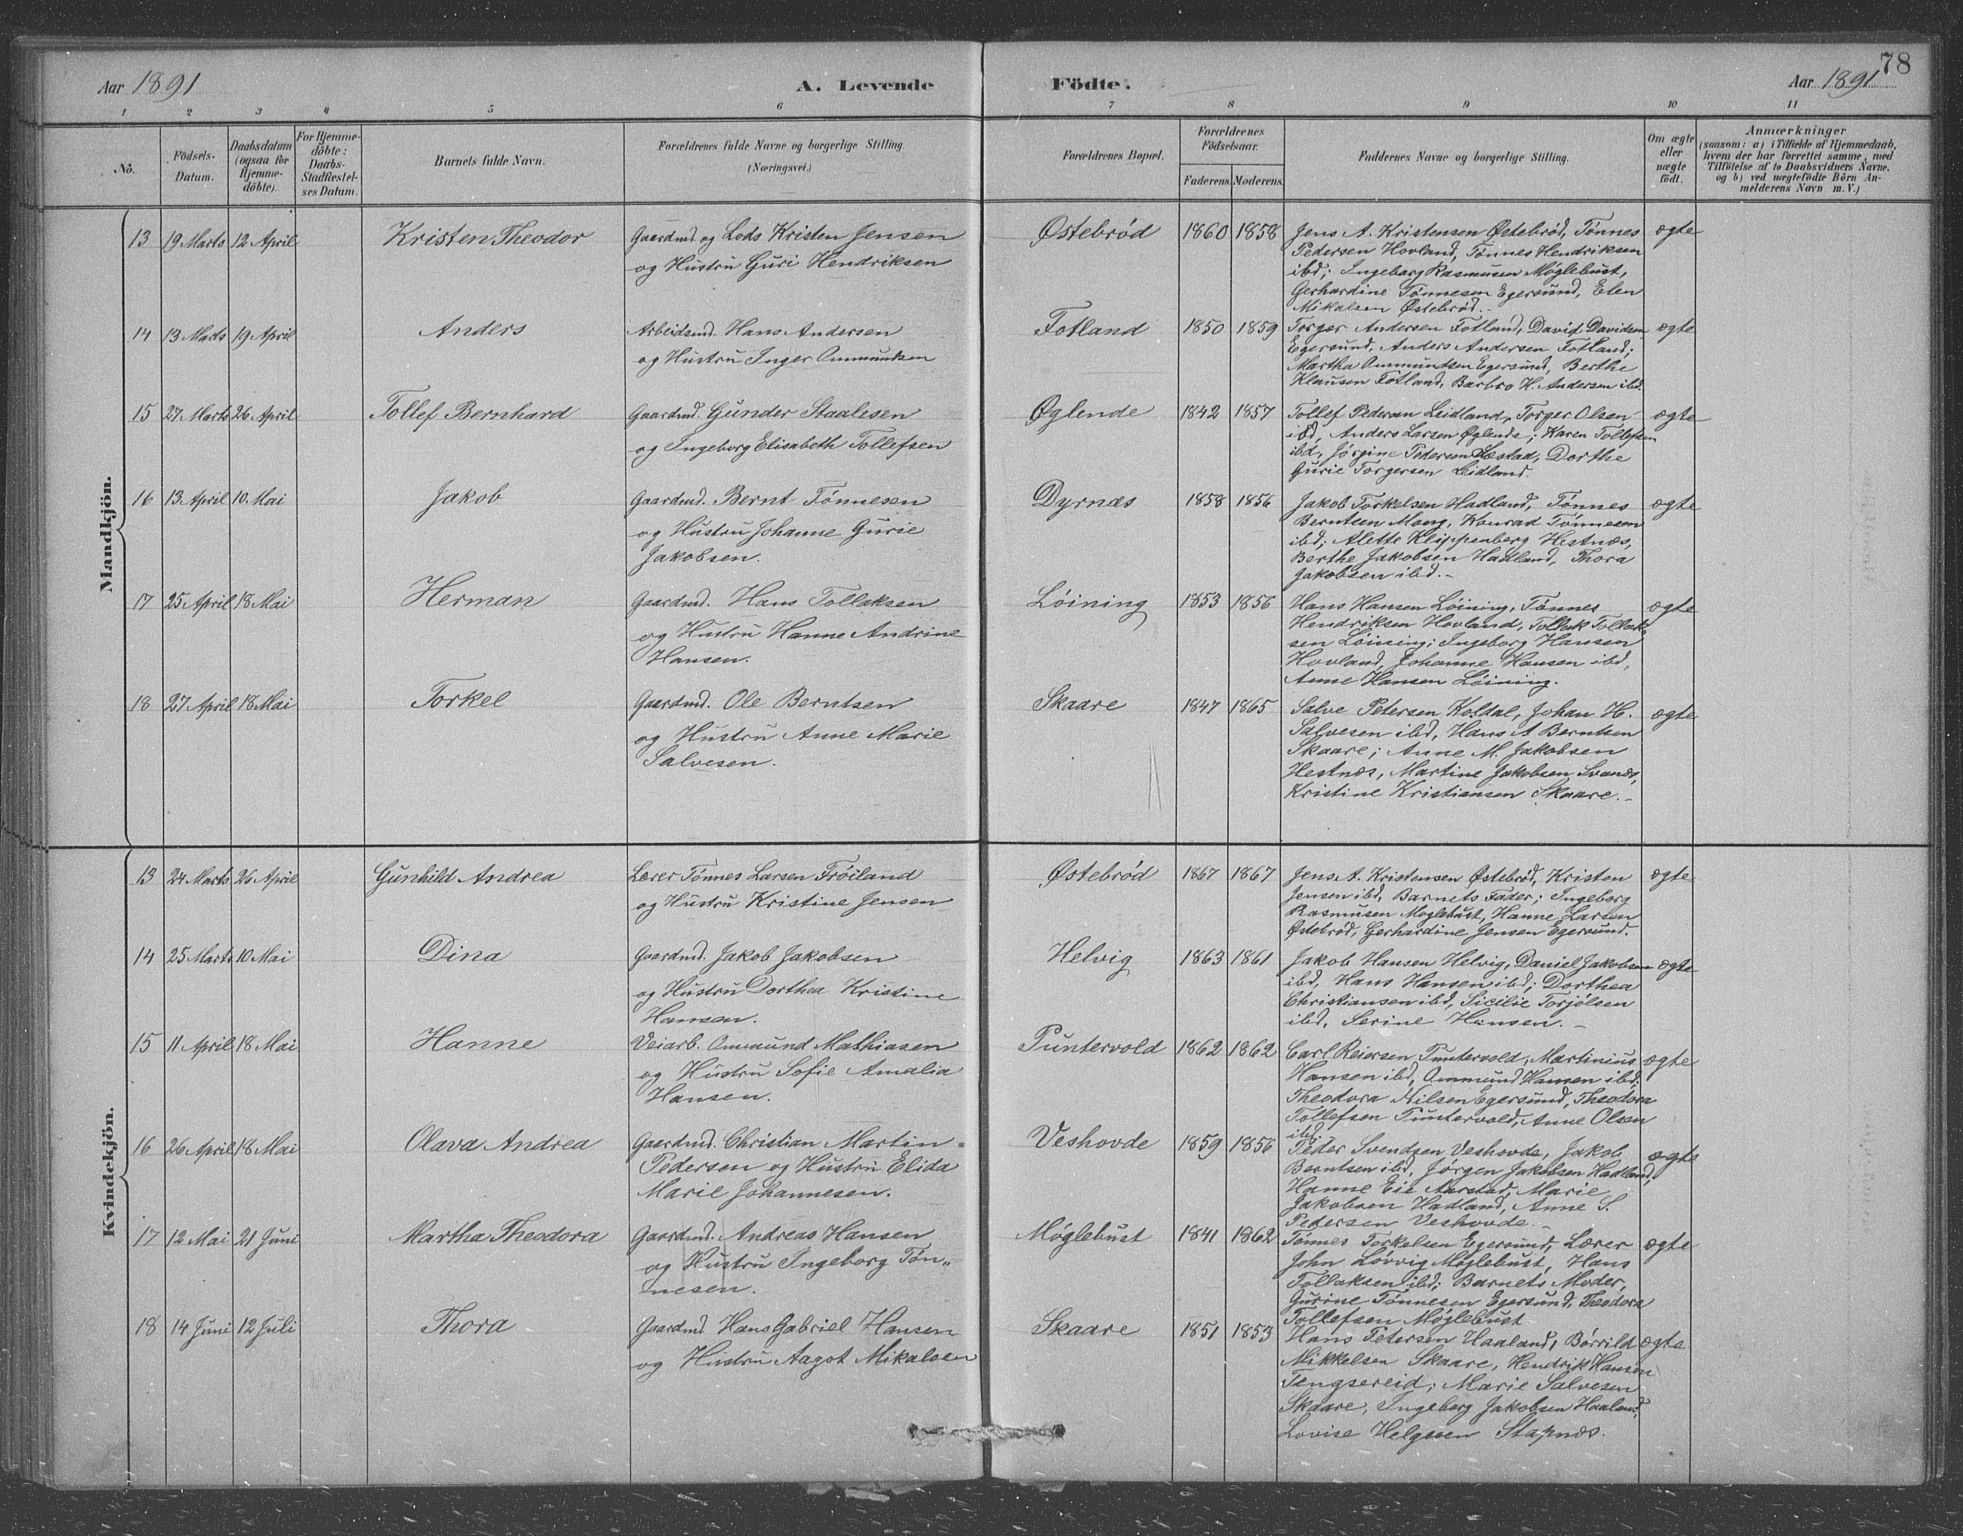 78
Aar 1891 A. Levende Födte. Aar 1891
1 2 3 4 5 6 7 8 9 10 11
No.
Födsels-Datum.
Daabsdatum (ogsaa for Hjemmedöbte).
For Hjemmedöbte: Daabs-Stadfæstelses Datum.
Barnets fulde Navn.
Forældrenes fulde Navne og borgerlige Stilling. (Næringsvei.)
Forældrenes Bopæl.
Forældrenes Födselsaar.
Faderens. Moderens.
Faddernes Navne og borgerlige Stilling.
Om ægte eller uægte födt.
Anmærkninger
(saasom: a) i Tilfælde af Hjemmedaab, hvem der har forrettet samme, med Tilföielse af to Daabsvidners Navne, og b) ved uægtefödte Börn Anmelderens Navn m. V.)
Mandkjön.
13 19 Marts 12 April Kristen Theodor Gaardmd og Lods Kristen Jensen Østebrød 1860 1858 Jens A. Kristensen Østebrød, Tønnes ægte
og Hustru Guri Hendriksen Pedersen Hovland, Tønnes Hendriksen
ibd; Ingeborg Rasmusen Møglebust,
Gerhardine Tønnesen Egersund, Elen
Mikalsen Østebrød.
14 13 Marts 19 April Anders Arbeidsmd. Hans Andersen Fotland 1850 1859 Torger Andersen Fotland, David Davidsen ægte
og Hustru Inger Ommundsen Egersund, Anders Andersen Fotland;
Martha Ommundsen Egersund, Berthe
Klausen Fotland, Barbro H. Andersen ibd.
15 27 Marts 26 April Tollef Bernhard Gaardmd. Gunder Staalesen Øglende 1842 1857 Tollef Pedersen Leidland, Torger Olsen ægte
og Ingeborg Elisabeth Tollefsen ibd, Anders Larsen Øglende; Karen Tollefsen
ibd, Jørgine Petersen Læstad, Dorthe
Gurie Torgersen Leidland.
16 13. April 10. Mai Jakob Gaardmd. Bernt Tønnesen Dyrnæs 1858 1856 Jakob Torkelsen Hadland, Tønnes ægte
og Hustru Johanne Gurie Berntsen Mong, Konrad Tønnesen
Jakobsen. ibd; Alette Klippenberg Hestnæs,
Berthe Jakobsen Hadland, Thora
Jakobsen ibd.-
17 25 April 18 Mai Herman Gaardmd. Hans Tollaksen Løining 1853 1856 Hans Hansen Løining, Tønnes ægte
og Hustru Hanne Andrine Hendriksen Hovland, Tollak Tollak-
Hansen. sen Løining; Ingeborg Hansen
Hovland, Johanne Hansen ibd,
Anne Hansen Løining.
18 27 April 18 Mai Torkel Gaardmd. Ole Berntsen Skaare 1847 1865 Salve Petersen Koldal, Johan H. ægte
og Hustru Anne Marie Salvesen ibd, Hans A Berntsen
Salvesen. Skaare; Anne M. Jakobsen
Hestnæs, Martine Jakobsen Svanæs,
Kristine Kristiansen Skaare.-
Kvindekjön.
13 24 Marts 26 April Gunhild Andrea Lærer Tønnes Larsen Frøiland Østebrød 1867 1867 Jens. A. Kristensen Østebrød, Kristen ægte
og Hustru Kristine Jensen Jensen ibd, Barnets Fader; Ingeborg
Rasmusen Møglebust, Hanne Larsen
Østebrød, Gerhardine Jensen Egersund.
14 25 Marts 10 Mai Dina Gaardmd. Jakob Jakobsen Helvig 1863 1861 Jakob Hansen Helvig, Daniel Jakobsen ægte
og Hustru Dorthea Kristine ibd, Hans Hansen ibd; Dorthea
Hansen. Christiansen ibd, Sicilie Torjølsen
ibd, Serine Hansen.-
15 11 April 18 Mai Hanne Veiarb. Ommund Mathiasen Puntervold 1862 1862 Carl Reiersen Puntervold, Martinius ægte
og Hustru Sofie Amalia Hansen ibd, Ommund Hansen ibd.
Hansen. Theodora Nilsen Egersund, Theodora
Tollefsen Puntervold, Anne Olsen
ibd.
16 26 April 18 Mai Olava Andrea Gaardmd. Christian Martin Veshovde 1859 1856 Peder Svendsen Veshovde, Jakob ægte
Pedersen og Hustru Elida Berntsen ibd, Jørgen Jakobsen Hadland,
Marie Johannesen. Hanne Eie Aarstad, Marie
Jakobsen Hadland, Anne S.
Pedersen Veshovde.-
17 12 Mai 21 Juni Martha Theodora Gaardmd. Andreas Hansen Møglebust 1841 1862 Tønnes Torkelsen Egersund, Lærer ægte
og Hustru Ingeborg Tøn- John Løvvig Møglebust, Hans
nesen. Tollaksen ibd; Barnets Moder,
Gurine Tønnesen Egersund, Theodora
Tollefsen Møglebust
18 14 Juni 12 Juli Thora Gaardmd Hans Gabriel Hansen Skaare 1851 1853 Hans Petersen Haaland, Børrild ægte
og Hustru Aagot Mikalsen Mikkelsen Skaare, Hendrik Hansen
Tengsereid; Marie Salvesen
Skaare, Ingeborg Jakobsen Haaland,
Lovise Helgesen Stapnæs.